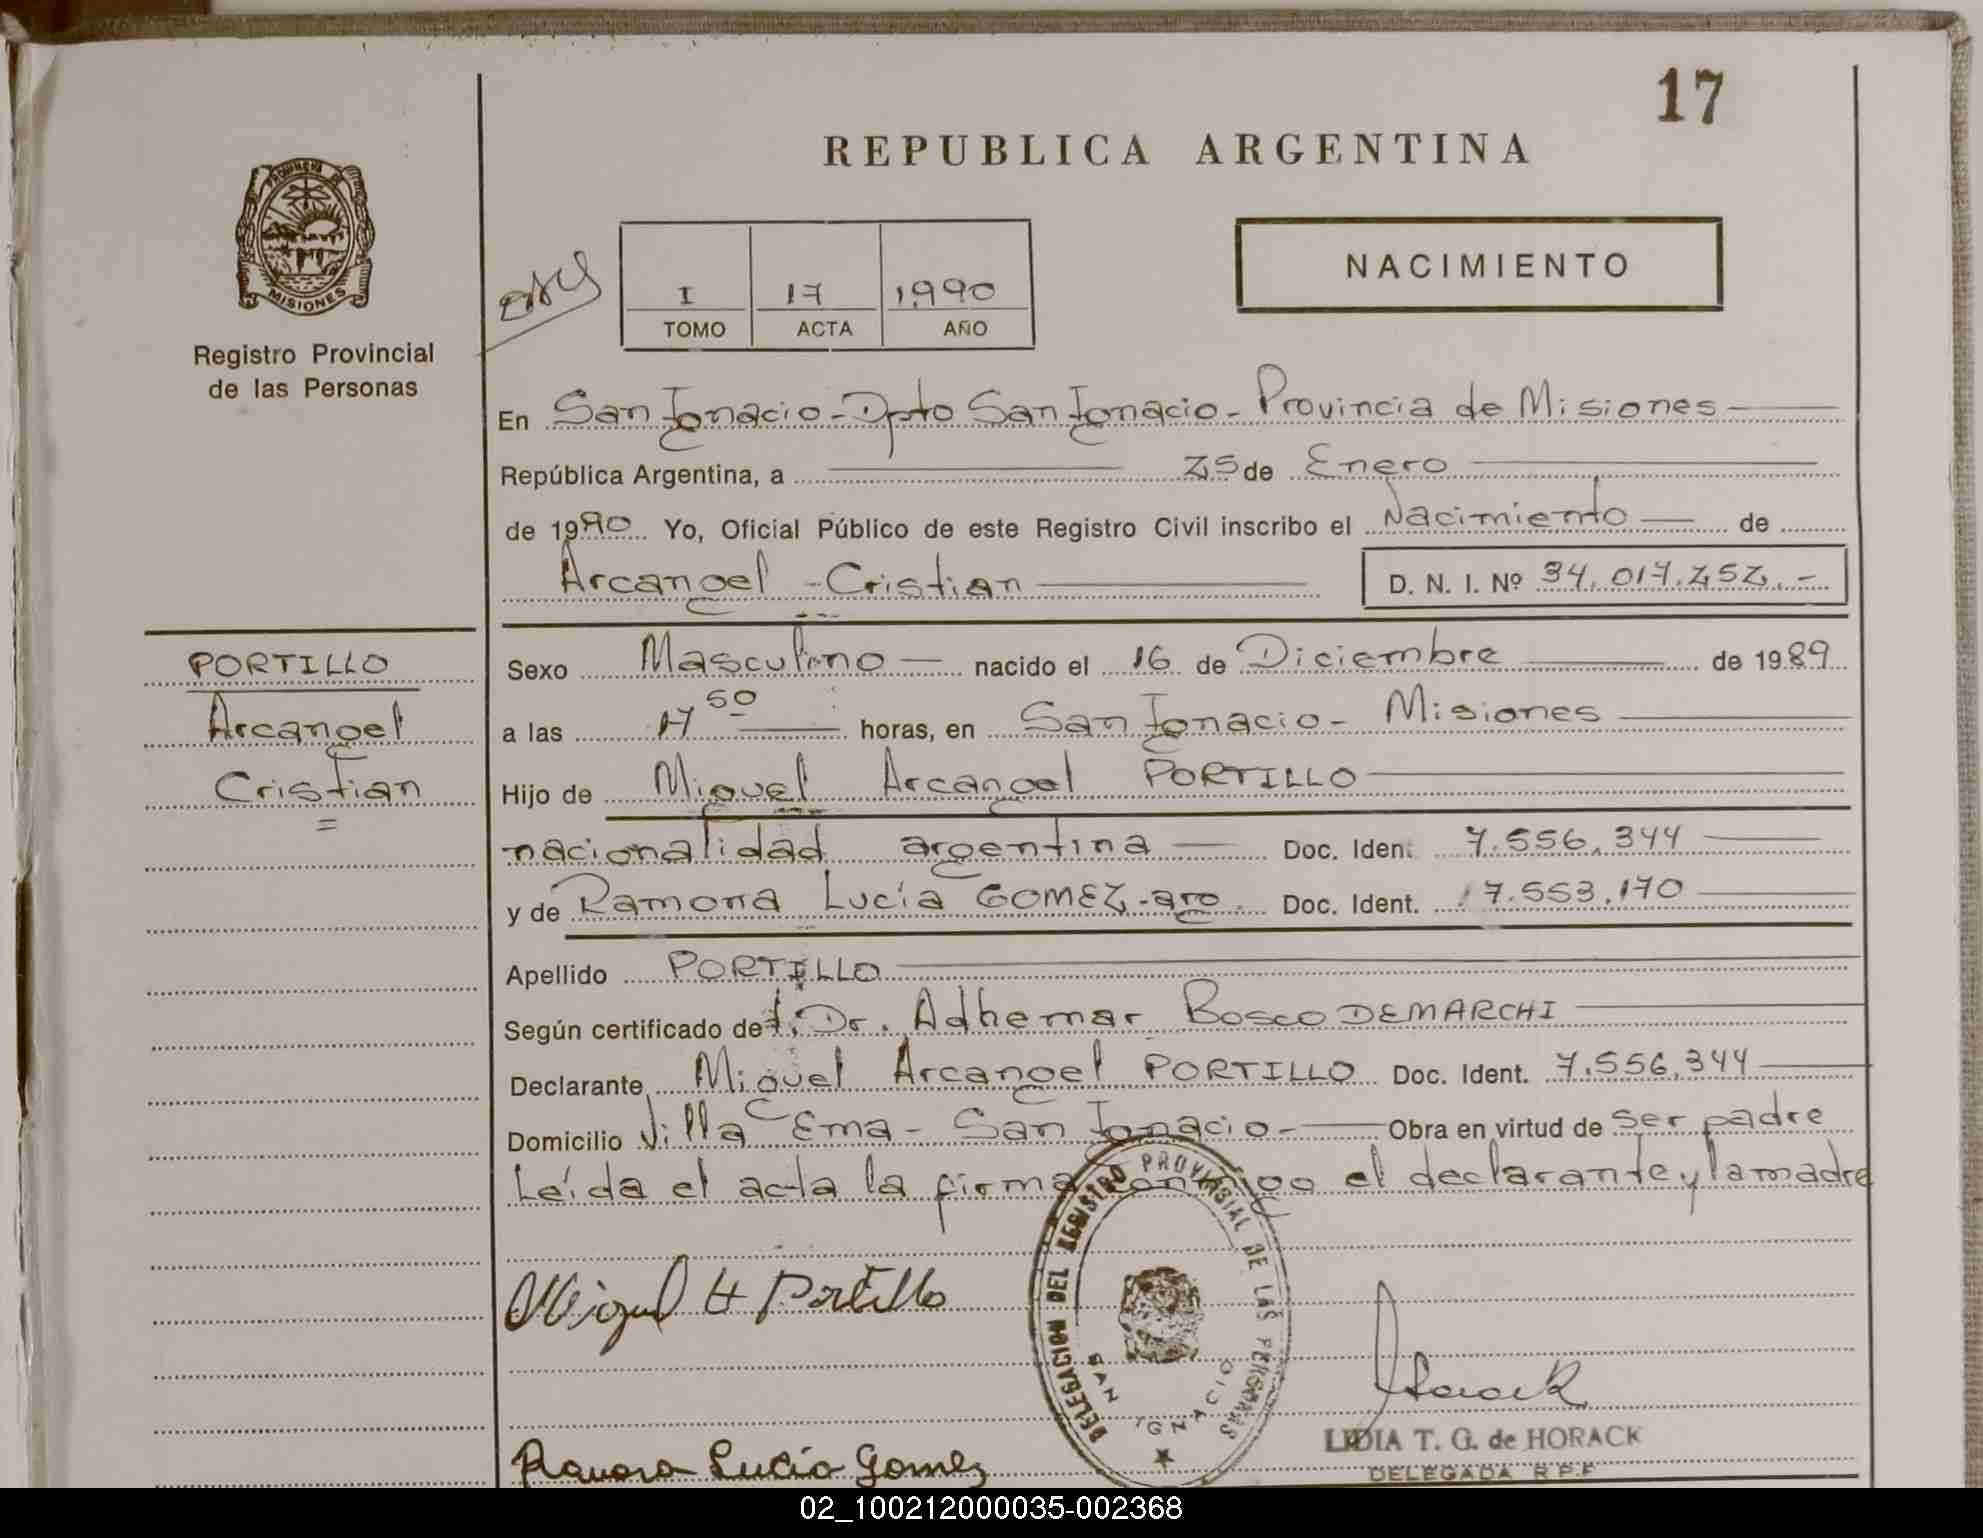 17
REPUBLICA ARGENTINA
NACIMIENTO
PROVINCIA DE
MISIONES
Registro Provincial
de las Personas
I 17 1990
TOMO ACTA AÑO
En San Ignacio - Dpto San Ignacio - Provincia de Misiones
República Argentina, a 25 de Enero
de 1990 Yo, Oficial Público de este Registro Civil inscribo el Nacimiento de
Arcangel - Cristian D. N. I. Nº 34.017.252.-
PORTILLO
Arcangel
Cristian
Sexo Masculino nacido el 16 de Diciembre de 1989
a las 17 50 horas, en San Ignacio - Misiones
Hijo de Miguel Arcangel PORTILLO
nacionalidad argentina Doc. Ident. 7.556.344
y de Ramona Lucía GOMEZ - arg. Doc. Ident. 17.553.170
Apellido PORTILLO
Según certificado del Dr. Adhemar Bosco DEMARCHI
Declarante Miguel Arcangel PORTILLO Doc. Ident. 7.556.344
Domicilio Villa Ema - San Ignacio - Obra en virtud de ser padre
Leída el acta la firma conmigo el declarante y la madre
Miguel A Portillo
DELEGACION DEL REGISTRO PROVINCIAL DE LAS PERSONAS
SAN IGNACIO
Horack
LIDIA T. G. de HORACK
DELEGADA R.P.P
Ramona Lucía Gomez
02_100212000035-002368